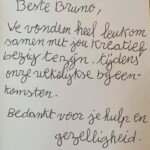 Beste Bruno,
We vonden heel leuk om
samen met jou kreatief
bezig te zijn, tijdens
onze wekelijkse bijeen-
komsten.
Bedankt voor je hulp en
gezelligheid.